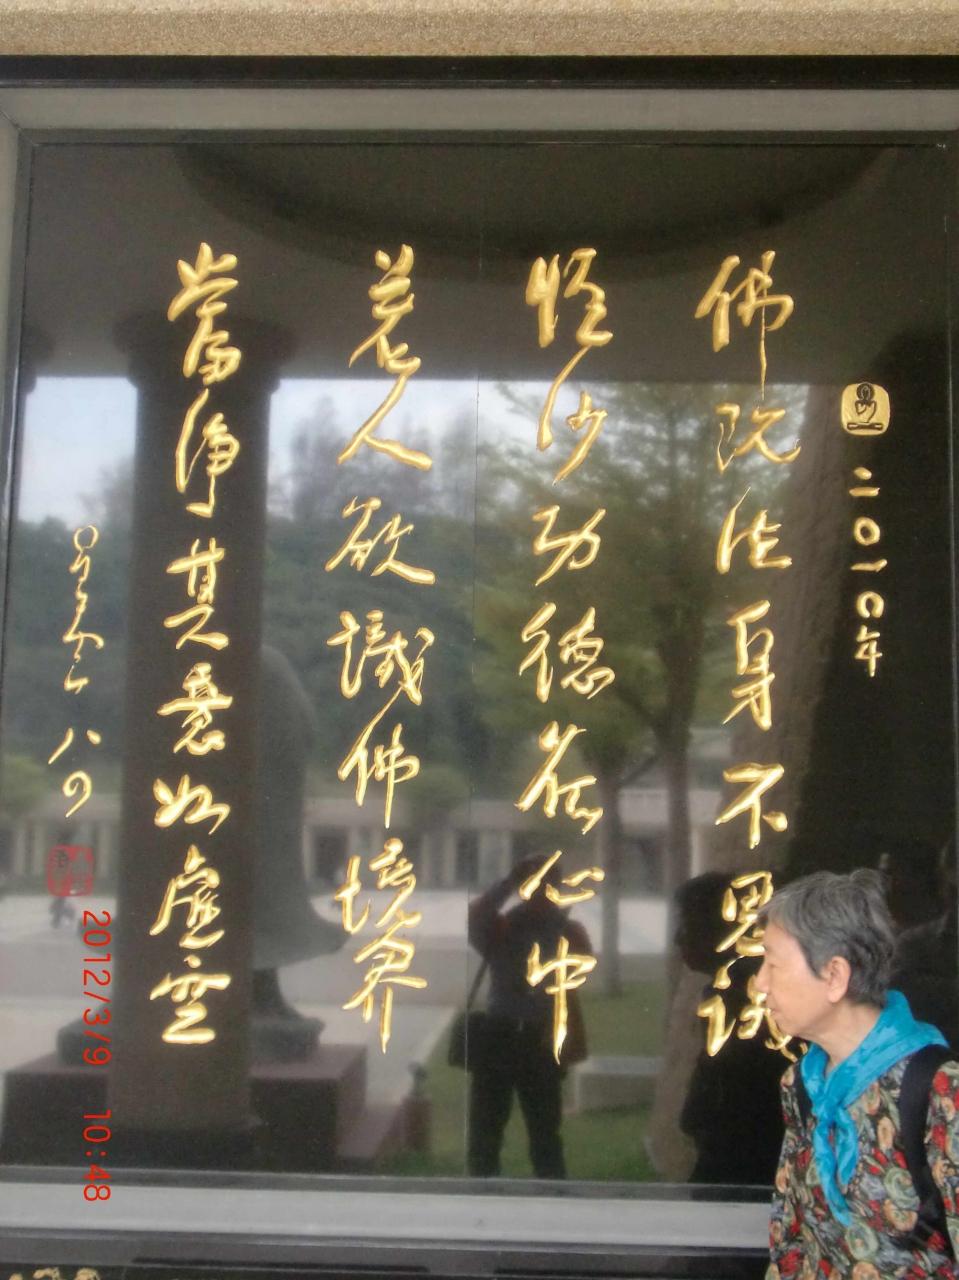 二〇一〇年
佛陀法身不思議
恆沙功德在心中
若人欲識佛境界
當淨其意如虛空
星雲 八四
2012/3/9 10:48